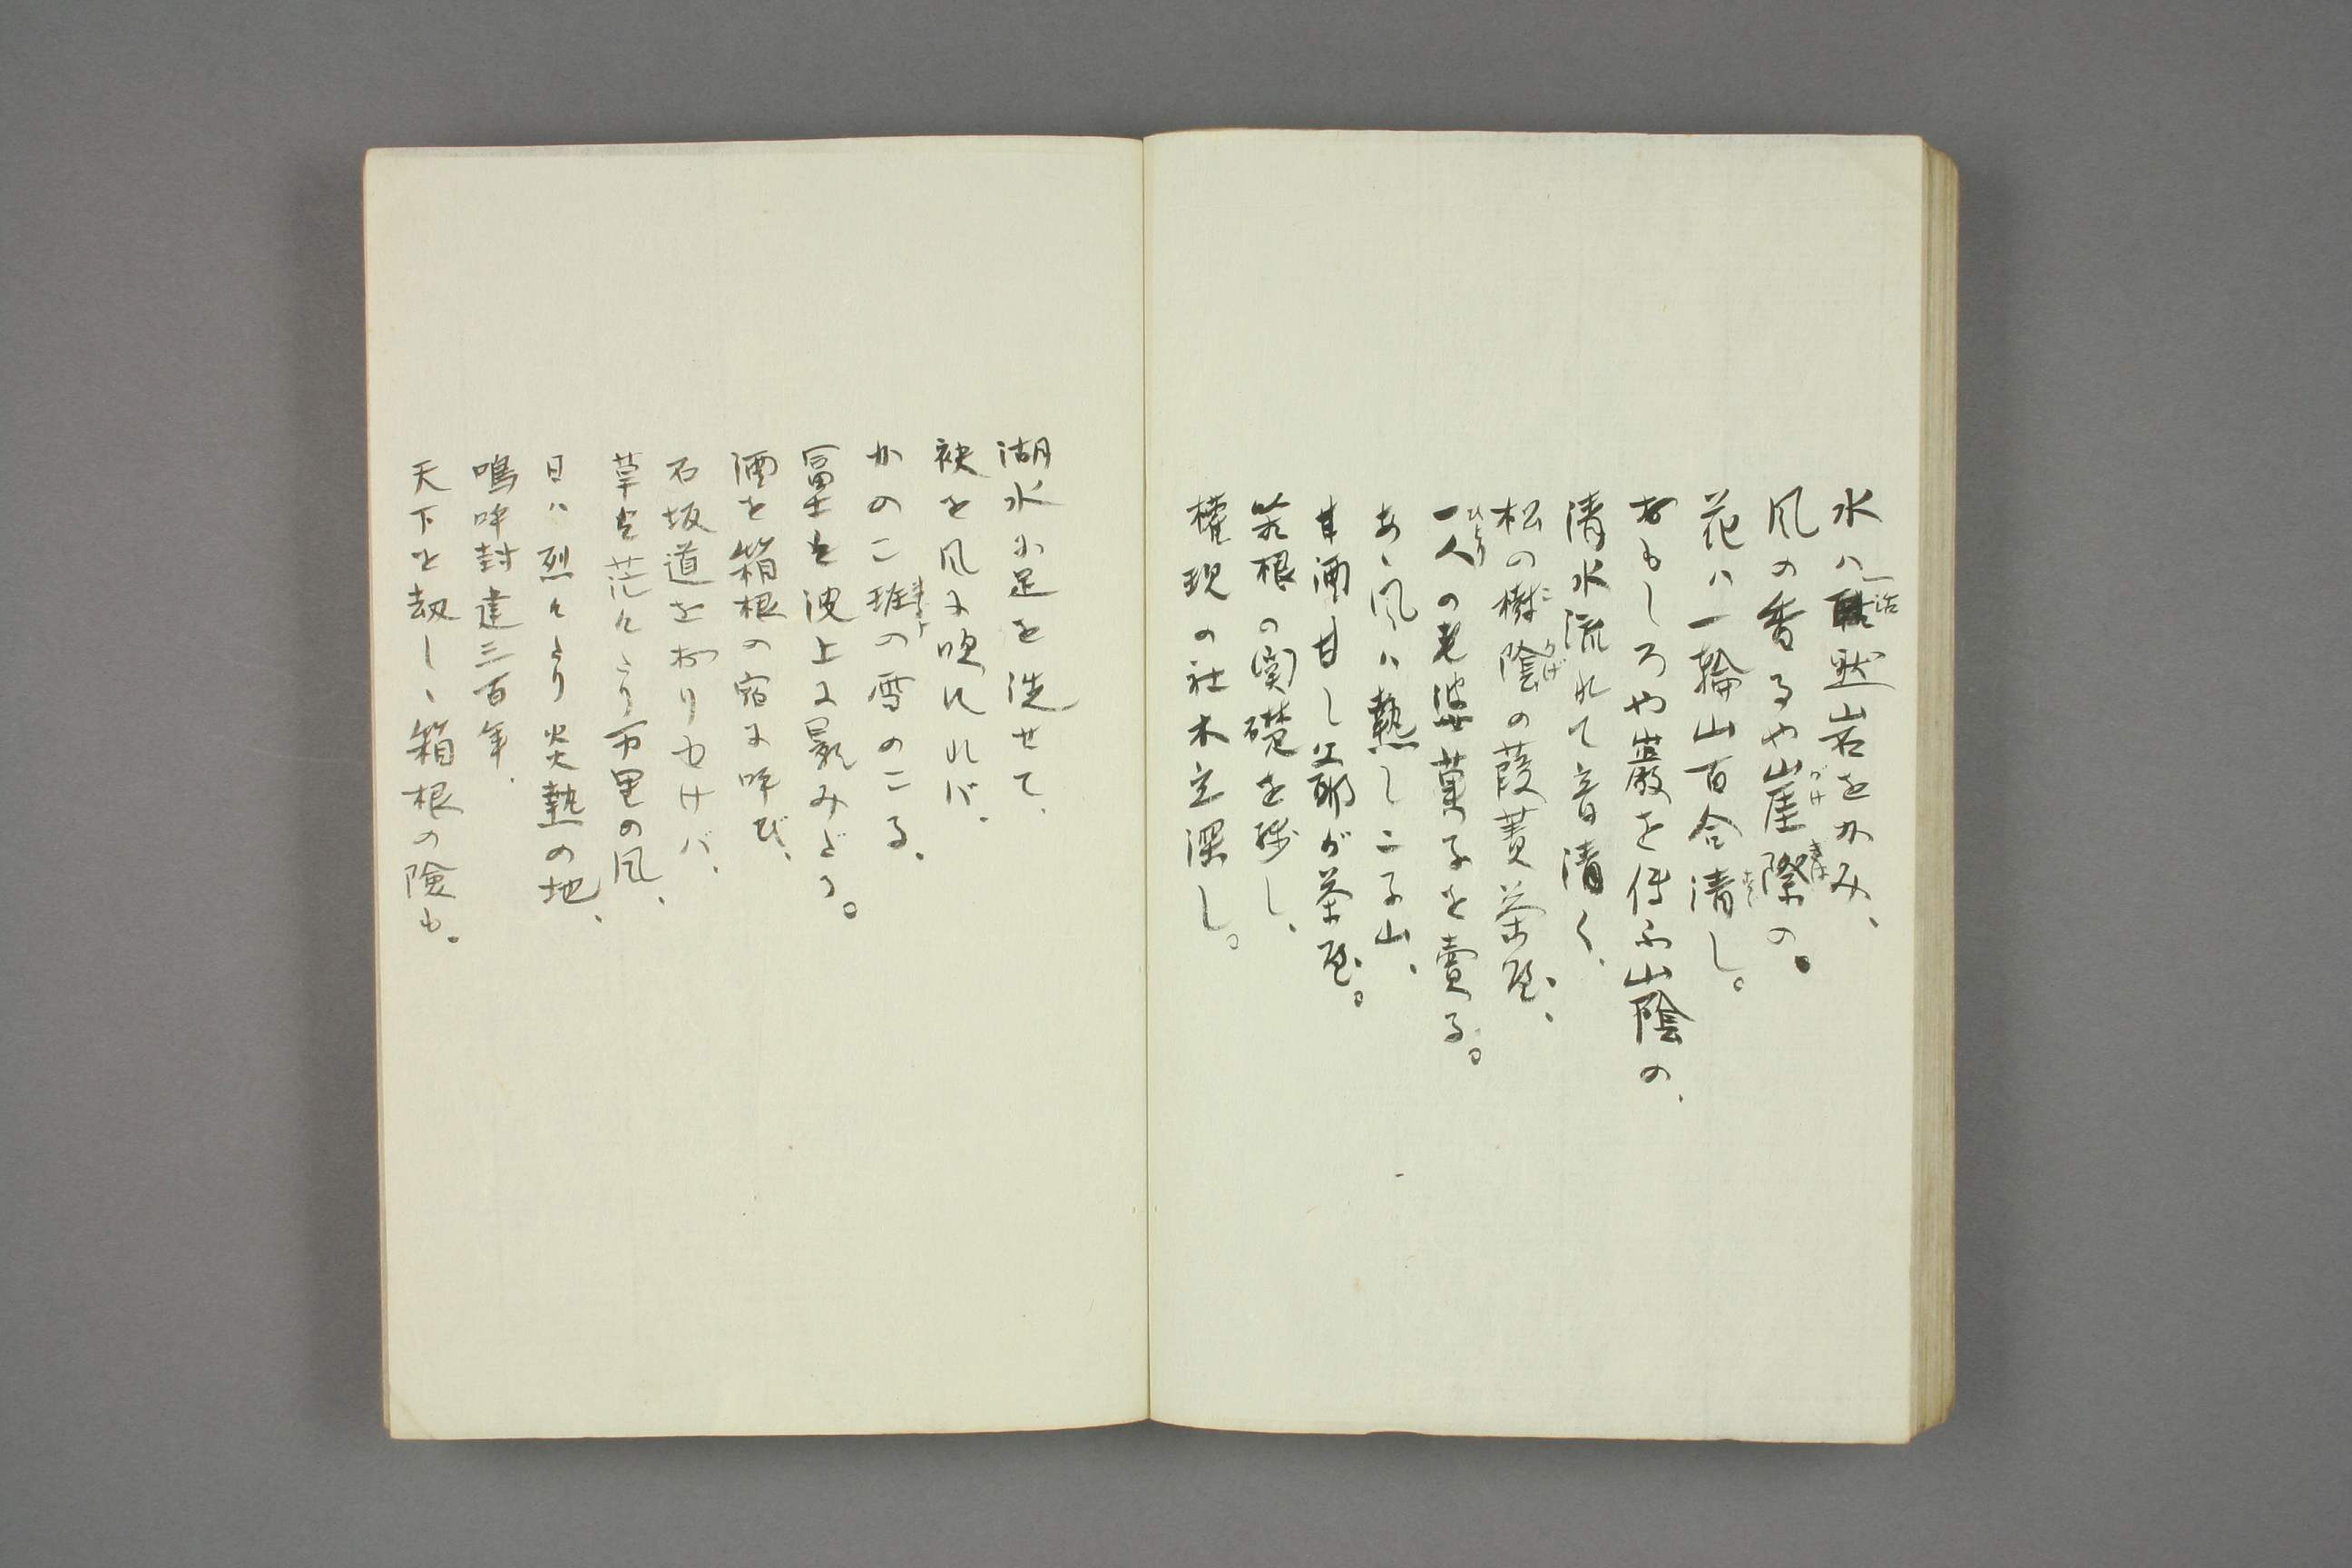 水ハ活然岩をかみ、
風の香るや山崖際の。
花ハ一輪山百合清し。
おもしろや巌を伝ふ山陰の、
清水流れて音清く、
松の樹陰の葭簀茶屋、
一人の老婆菓子を賣る。
あゝ風ハ熱し二子山、
甘酒甘し父耶が茶屋。
筥根の関礎を残し、
権現の社木立深し。
湖水に足を洗せて、
袂を風に吹かれバ、
かのこ斑の雪のこる、
冨士は波上に影みどり。
酒を箱根の宿に呼び、
石坂道をおりゆけバ、
草は茫々たり万里の風、
日ハ烈々たり炎熱の地、
嗚呼封建三百年、
天下を劫しゝ箱根の険も。